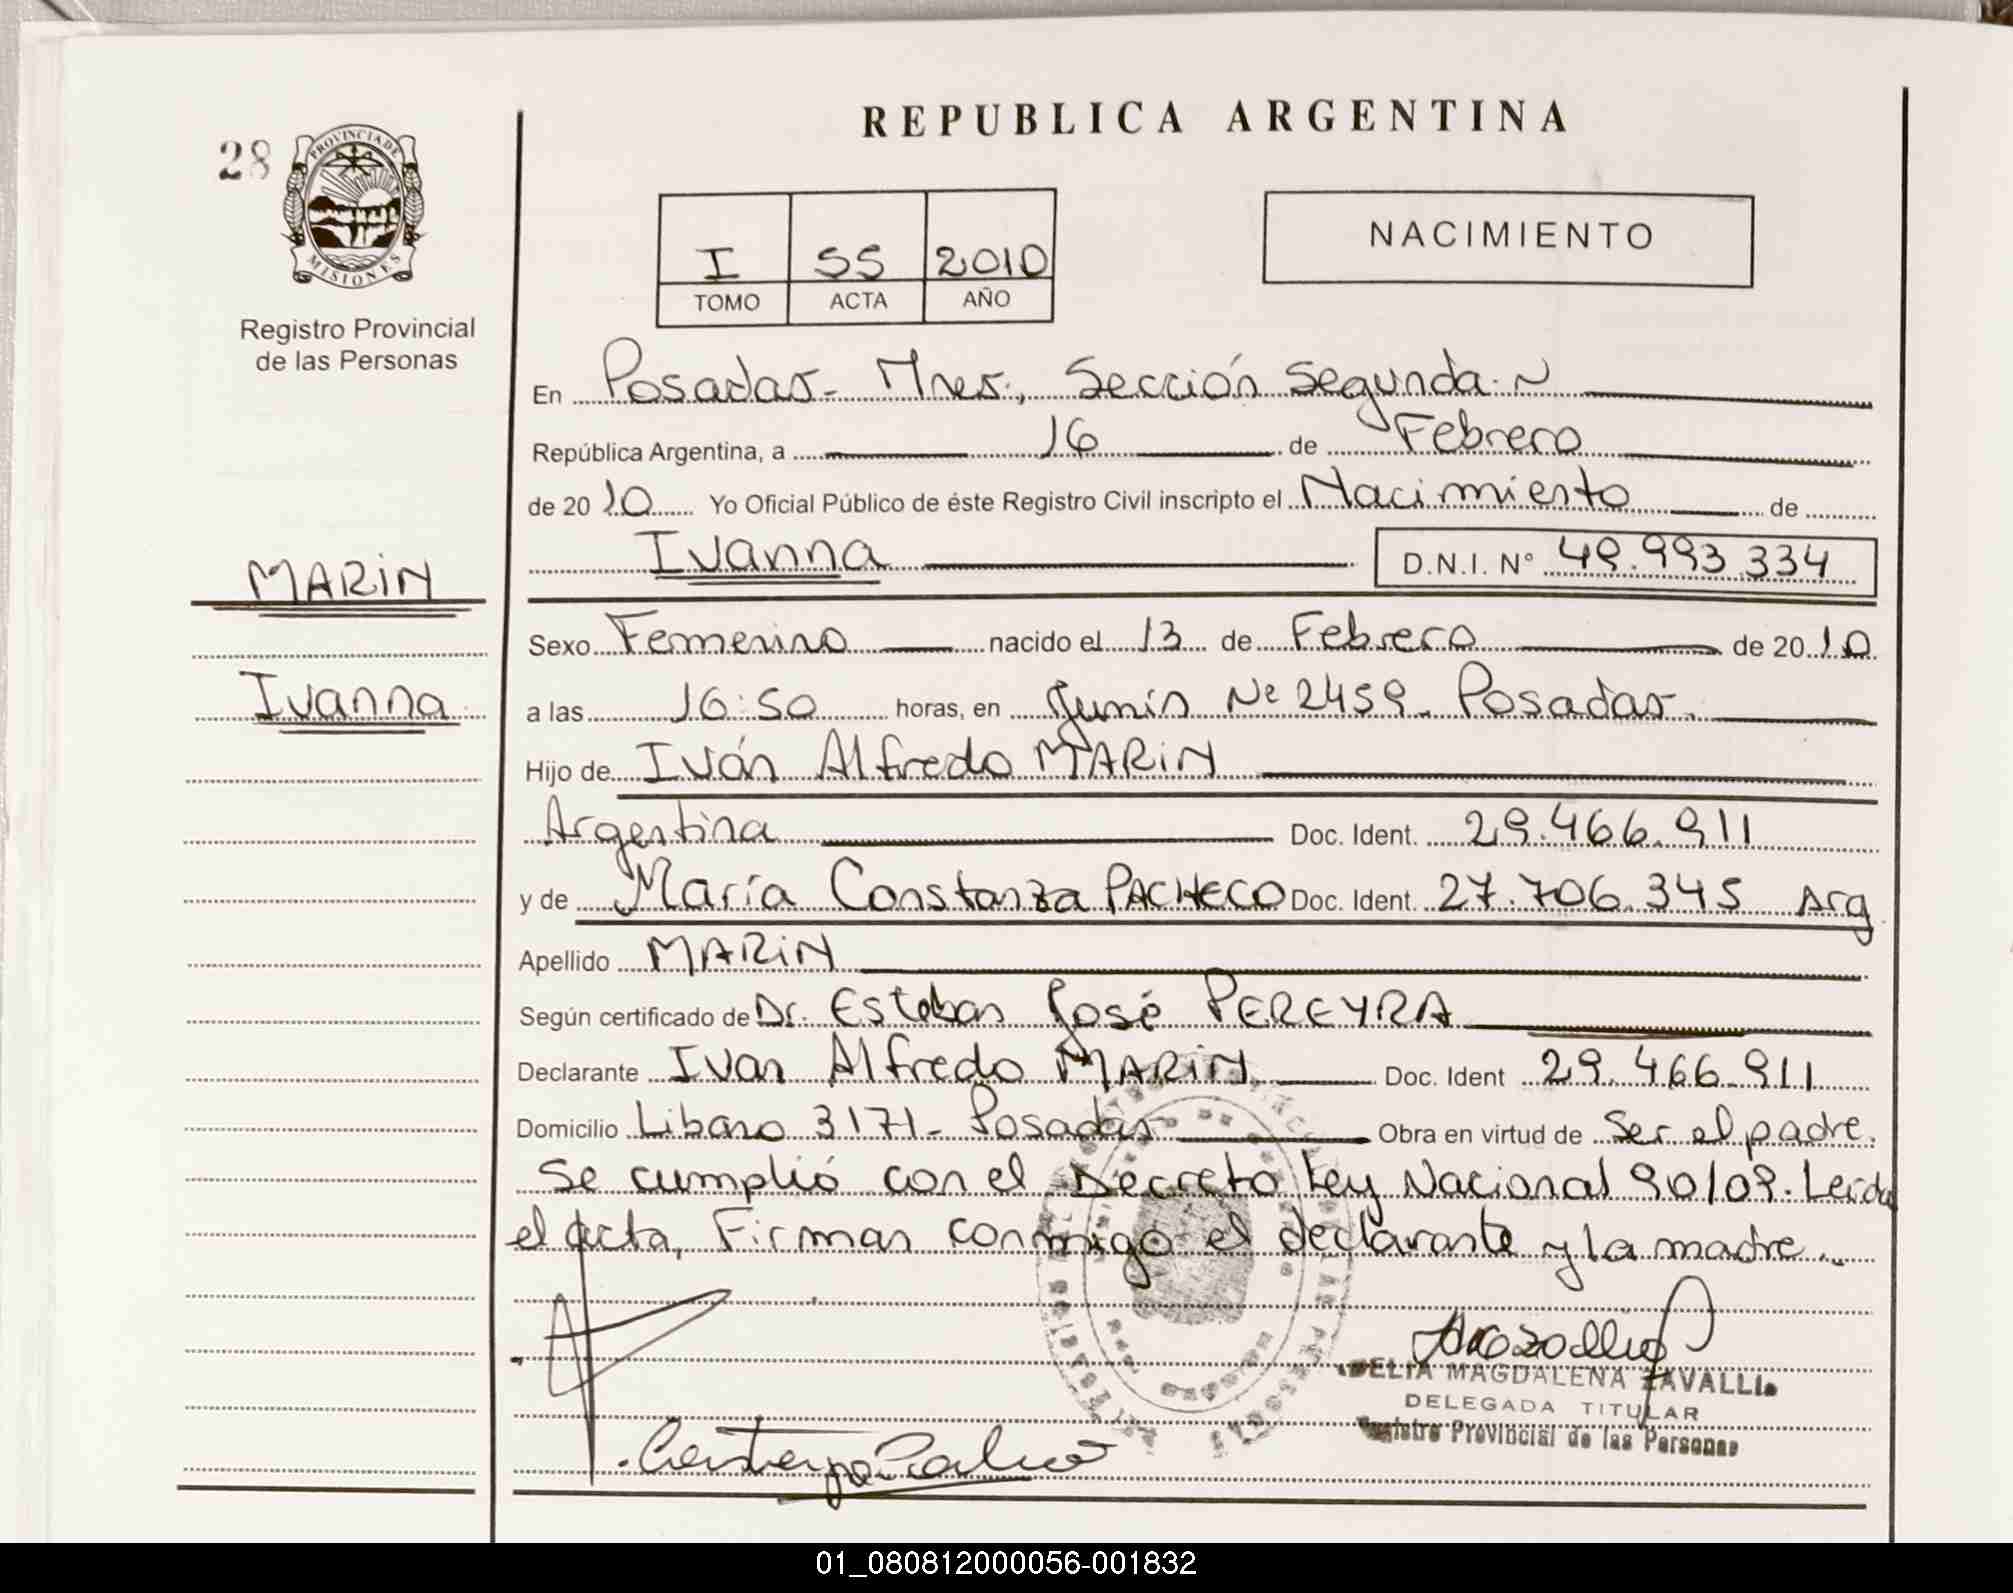 REPUBLICA ARGENTINA
28
PROVINCIA DE
MISIONES
Registro Provincial
de las Personas
I 55 2010
TOMO ACTA AÑO
NACIMIENTO
En Posadas - Mnes., Sección Segunda.
República Argentina, a 16 de Febrero
de 2010 Yo Oficial Público de éste Registro Civil inscripto el Nacimiento de
MARiN
Ivanna D.N.I. Nº 49.993.334
Sexo Femenino nacido el 13 de Febrero de 2010
Ivanna
a las 16:50 horas, en Junín Nº 2459. Posadas.
Hijo de Iván Alfredo MARiN
Argentina Doc. Ident. 29.466.911
y de María Constanza PACHECO Doc. Ident. 27.706.345 Arg
Apellido MARiN
Según certificado de Dr. Esteban José PEREYRA
Declarante Ivan Alfredo MARiN Doc. Ident 29.466.911
Domicilio Libano 3171 - Posadas Obra en virtud de Ser el padre.
Se cumplió con el Decreto Ley Nacional 90/09. Leida
el acta, Firman conmigo el declarante y la madre.
DELIA MAGDALENA ZAVALLI
DELEGADA TITULAR
Registro Provincial de las Personas
01_080812000056-001832